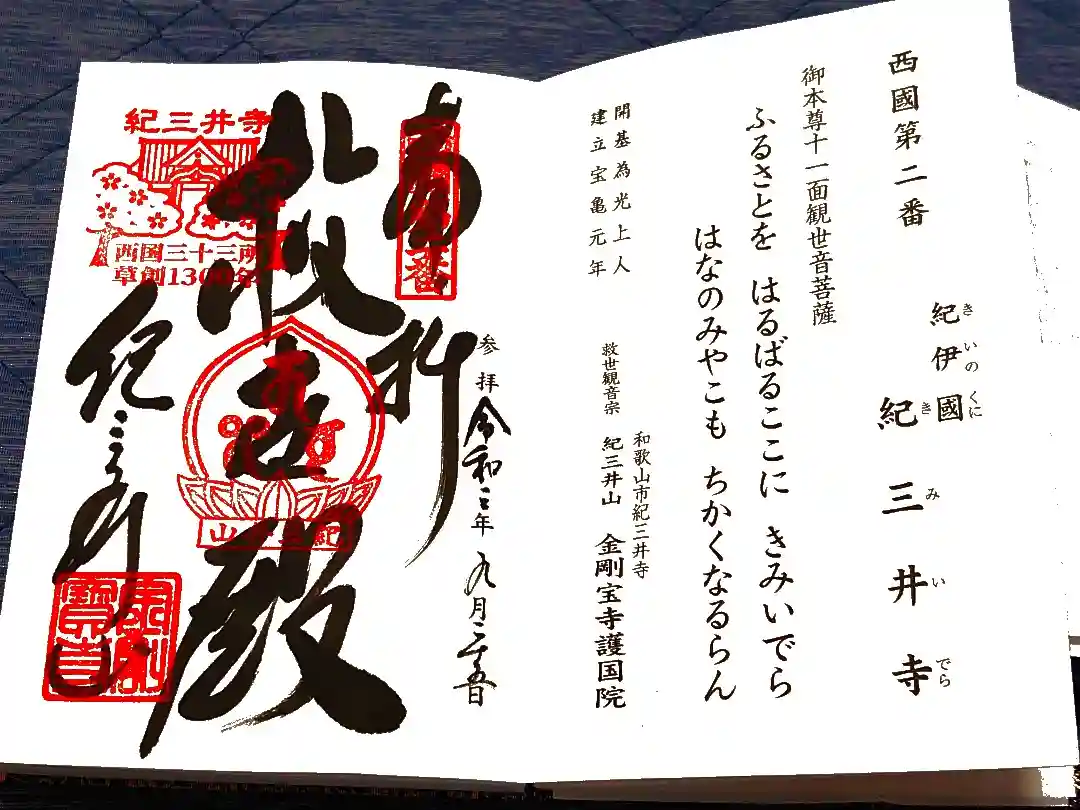 西國第二番
紀伊國
きいのくに
紀三井寺
きみいでら
御本尊十一面観世音菩薩
ふるさとを はるばるここに きみいでら
はなのみやこも ちかくなるらん
開基為光上人
建立宝亀元年
和歌山市紀三井寺
救世観音宗 紀三井山 金剛宝寺護国院
参拝 令和三年九月二十五日
奉拝
救世殿
紀三井寺
紀三井寺
西国三十三所
草創1300年